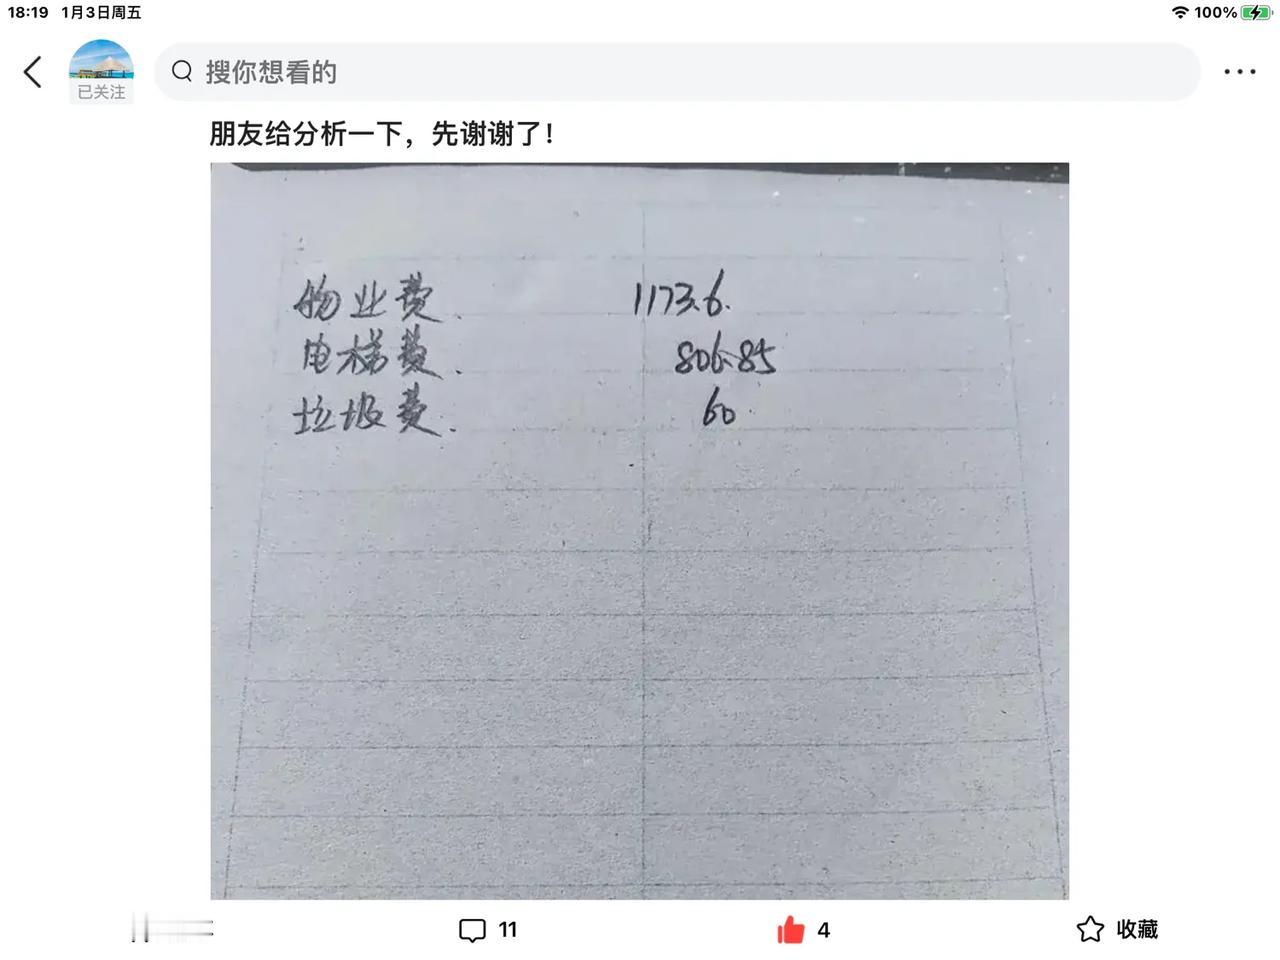 18:19 1月3日周五 100%
已关注 搜你想看的
朋友给分析一下，先谢谢了！
物业费. 1173.6.
电梯费. 806.85
垃圾费. 60.
11 4 收藏